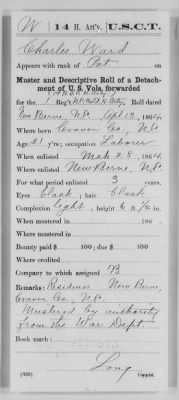 W | 14 H. Art'y. | U.S.C.T.
Charles Ward
Appears with rank of Pvt on
Muster and Descriptive Roll of a Detach-
ment of U. S. Vols. forwarded
for the 1 Reg't N.C. Col'd H. Art'y. Roll dated
New Berne, N.C., Apl 12, 1864.
Where born Craven Co., N.C.
Age 21 y'rs; occupation Laborer
When enlisted Mch 28, 1864.
Where enlisted New Berne, N.C.
For what period enlisted 3 years.
Eyes black; hair black
Complexion light; height 6 ft. in.
When mustered in , 186 .
Where mustered in
Bounty paid $ 100; due $ 100
Where credited
Company to which assigned B
Remarks: Residence New Berne,
Craven Co., N.C.
Mustered by authority
from the War Dept
Book mark:
Long
(339) Copyist.